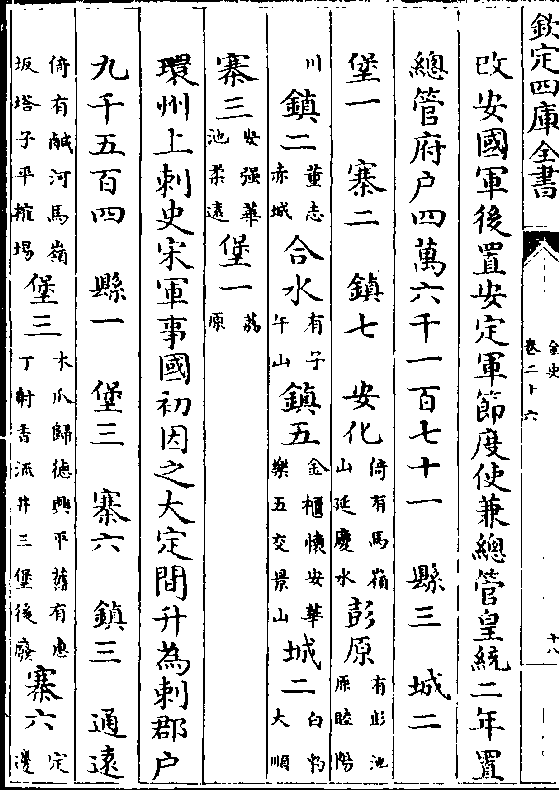 欽定四庫全書
金史
卷二十六
十八
改安國軍後置安定軍節度使兼總管皇統二年置
總管府户四萬六千一百七十一　縣三　城二
堡一　寨二　鎮七　安化倚有馬嶺山延慶水彭原有彭池原睦陽
川鎮二董志赤城合水有子午山鎮五金櫃懷安華樂五交景山城二白豹大順
寨三安強華池柔遠堡一荔原
環州上刺史宋軍事國初因之大定間升為刺郡户
九千五百四　縣一　堡三　寨六　鎮三　通遠
倚有鹹河馬嶺坂塔子平榷場堡三木瓜歸德興平舊有惠丁射香流井三堡後廢寨六定邊